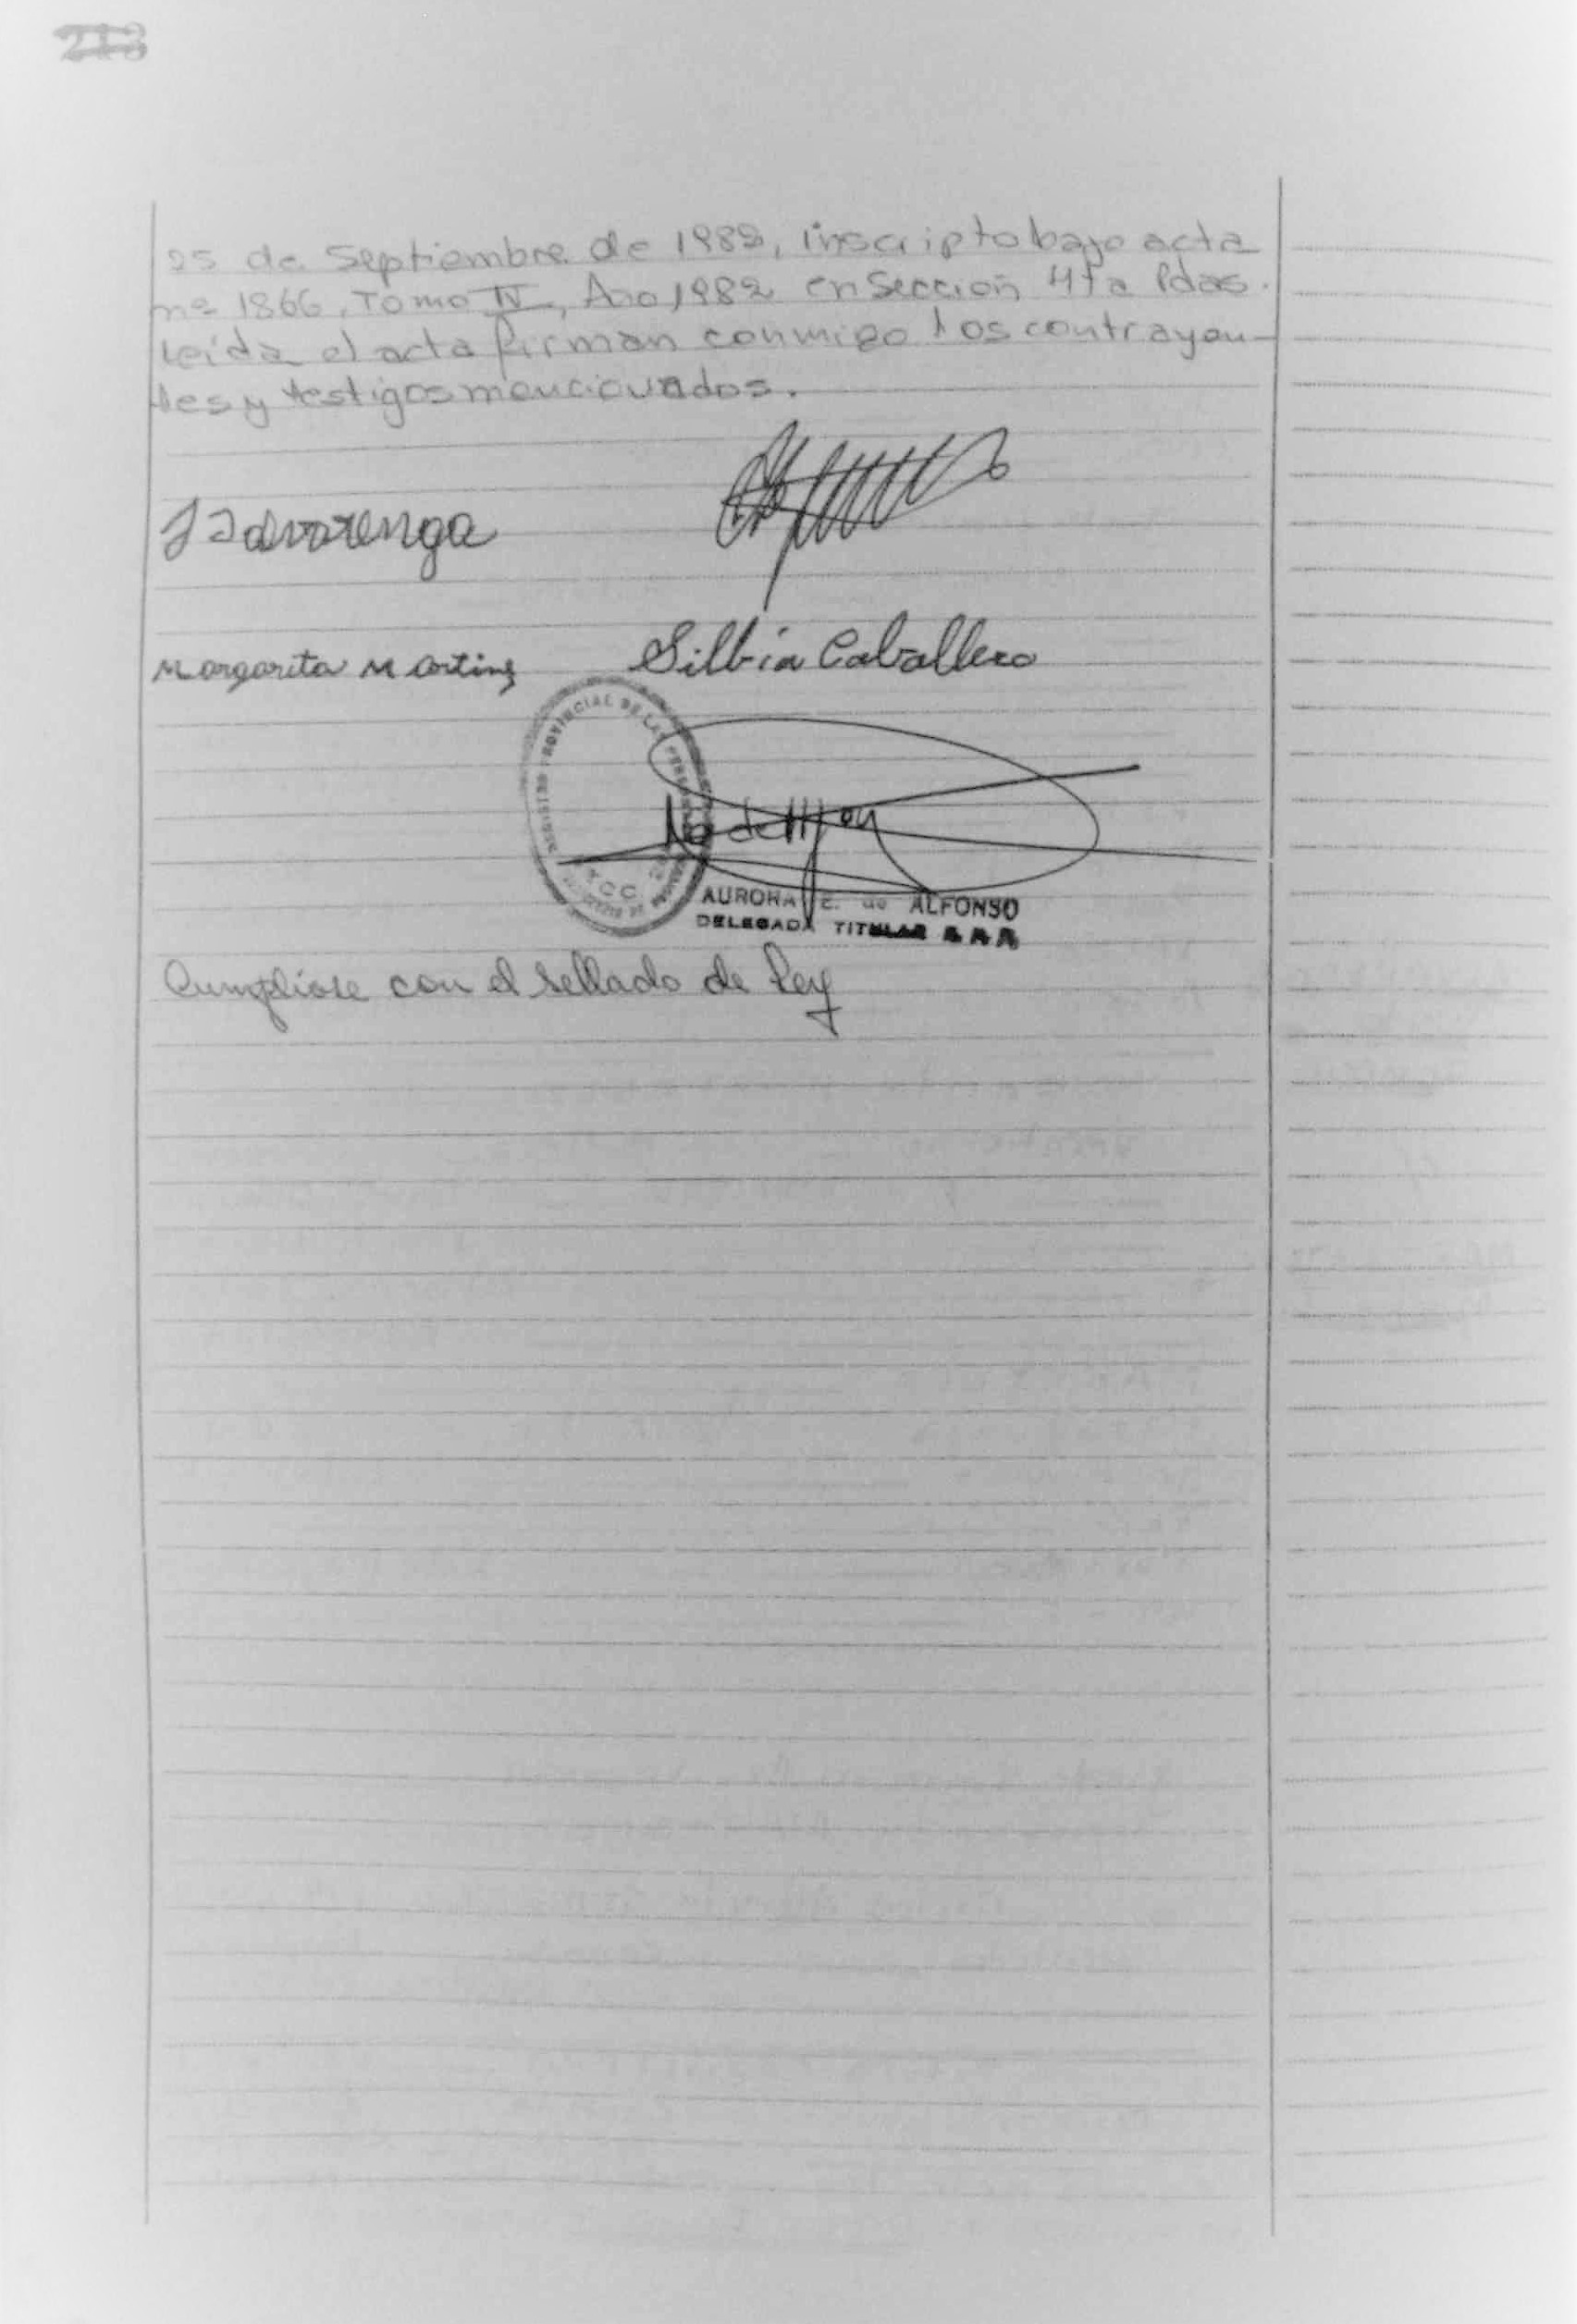 213
25 de Septiembre de 1982, inscripto bajo acta
nº 1866, Tomo IV, Año, 1982 en Sección 4ta Pdas.
Leída el acta firman conmigo los contrayen-
tes y testigos mencionados.
Alvarenga
Margarita Martinez Silbia Caballero
REGISTRO PROVINCIAL DE LAS PERSONAS
AURORA E. de ALFONSO
DELEGADA TITULAR
Cumpliose con el sellado de Ley